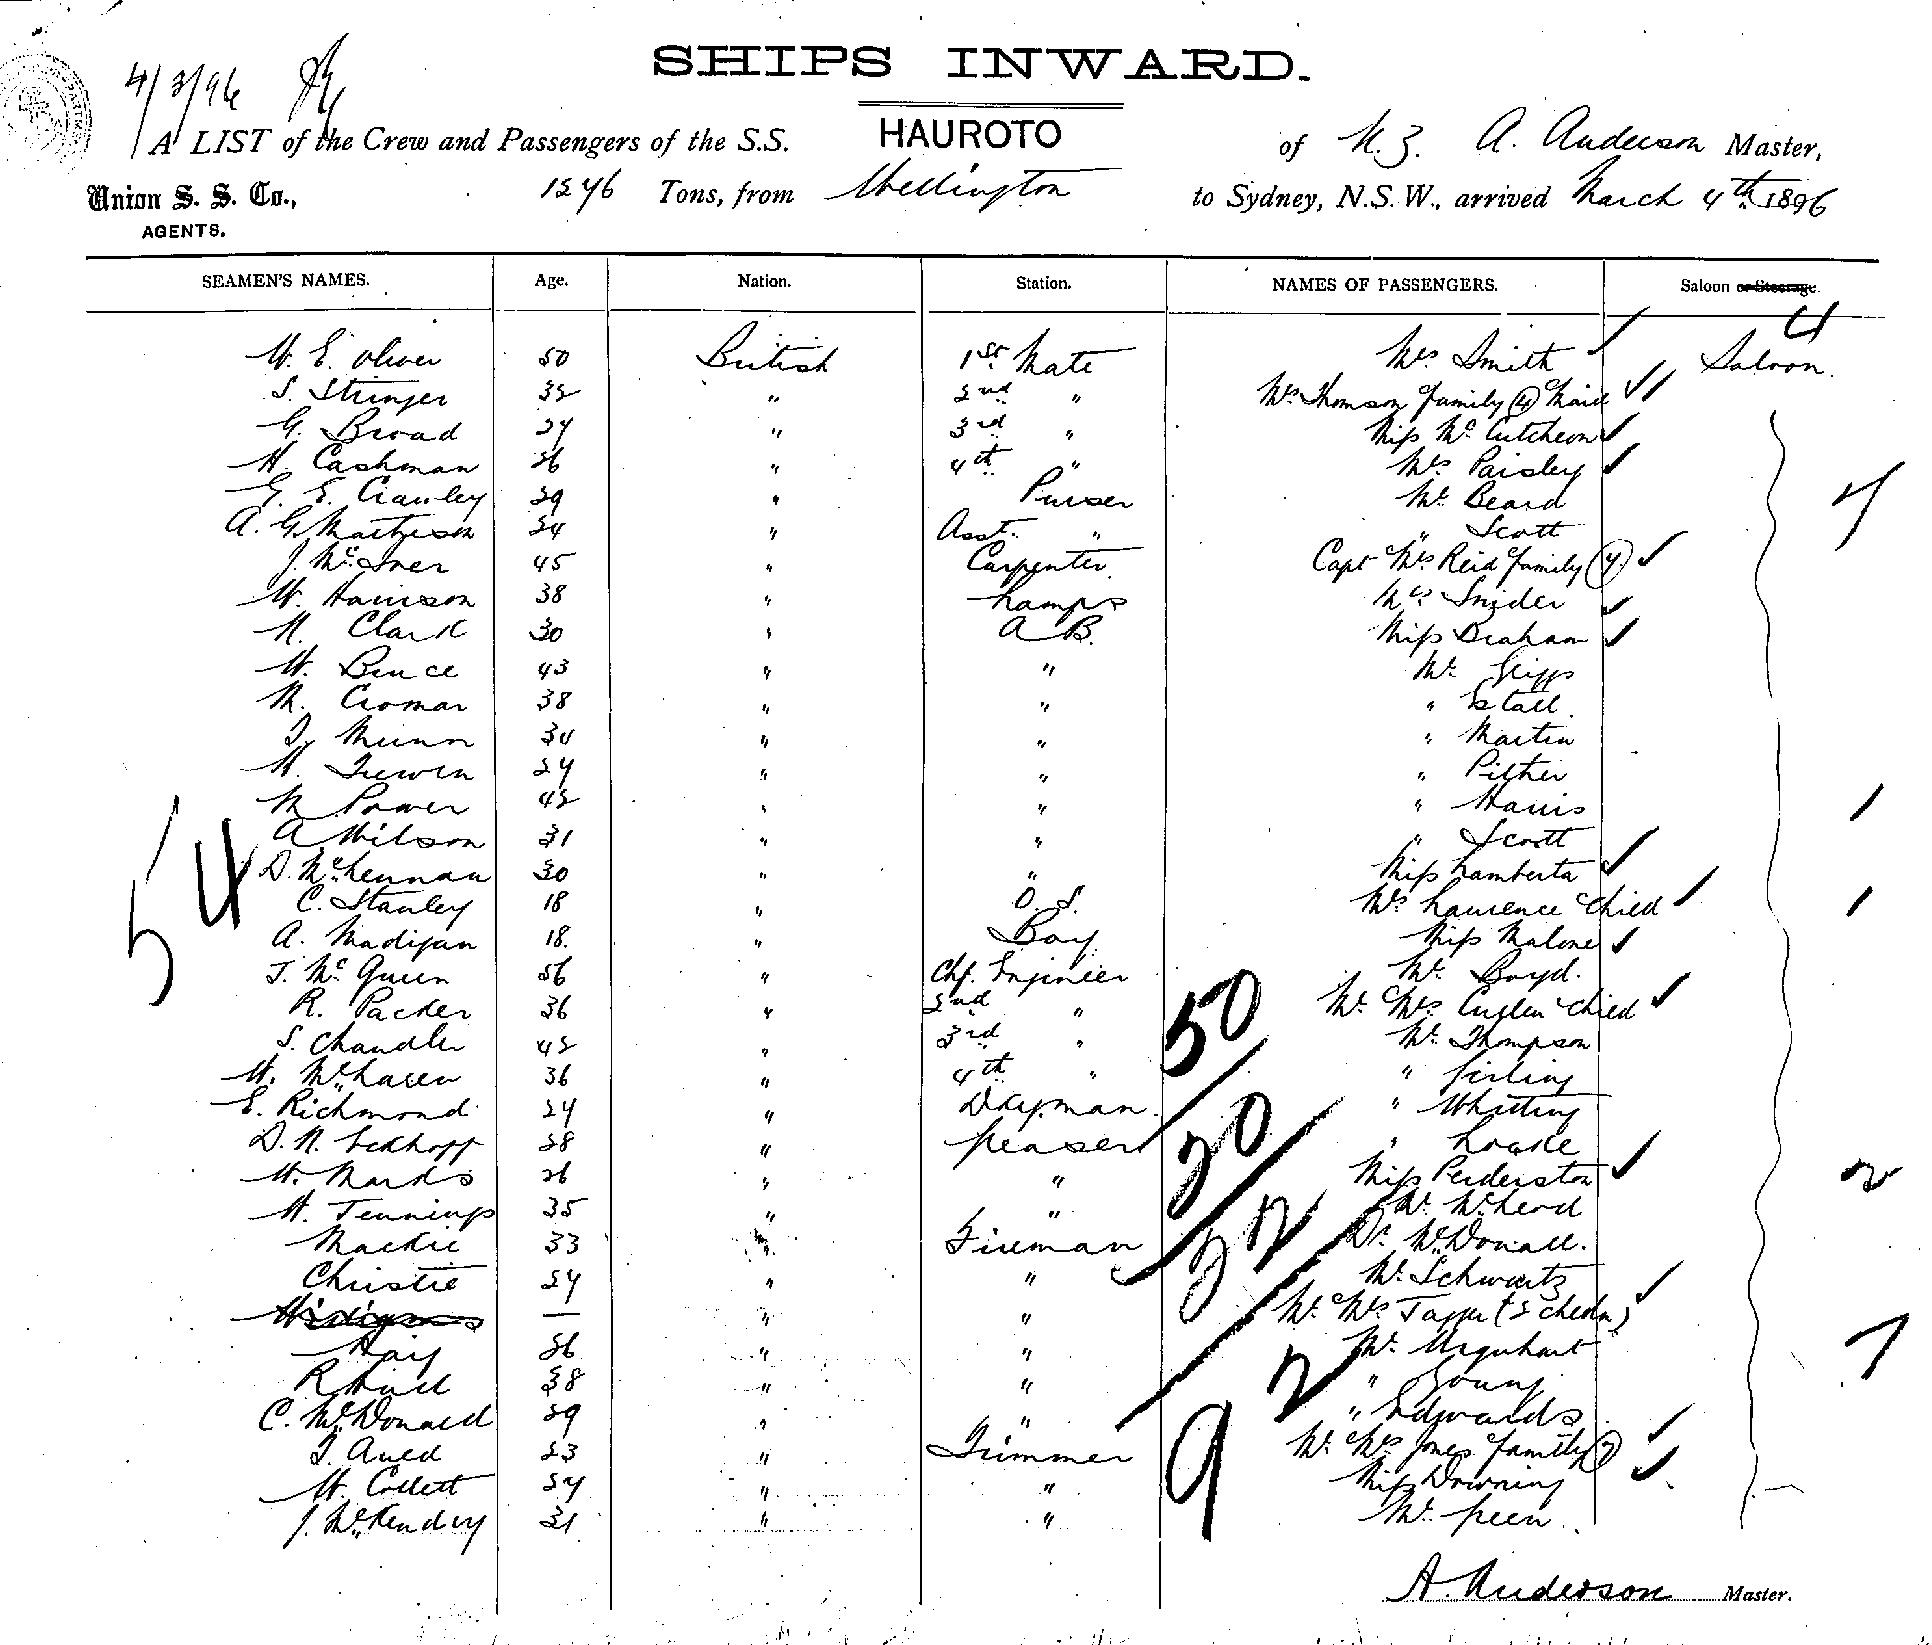 SHIPS INWARD.
4/3/96
A LIST of the Crew and Passengers of the S.S. HAUROTO of N.Z. A. Anderson Master,
Union S. S. Co., 1276 Tons, from Wellington to Sydney, N.S.W., arrived March 4th 1896
AGENTS.
SEAMEN'S NAMES. Age. Nation. Station. NAMES OF PASSENGERS. Saloon or Steerage.
4
W. E. Oliver 50 British 1st Mate Mrs Smith Saloon.
S. Stringer 32 " 2nd " Mrs Thomson family (4) & Maid
G. Broad 24 " 3rd " Miss McCutcheon
H. Cashman 26 " 4th " Mrs Paisley
G. E. Crawley 29 " Purser Mr Beard 7
A. G. Matheson 24 " Asst. " " Scott
J. 45 " Carpenter Capt & Mrs Reid & family (4)
W. Harrison 38 " Lamps Mrs Snider
N. Clark 30 " A B. Miss Braham
W. Bruce 43 " " Mr Gripps
M. Cromar 38 " " " Stall
Munn 34 " " " Martin
24 " " " Pither
M Power 42 " " " Harris 1
A Wilson 31 " " " Scott
54
D. McLennan 30 " " Miss Lamberta
C. Stanley 18 " O. S. Mrs Laurence & Child 1
A. Madigan 18. " Boy Miss Malone
J. McQueen 56 " Chf. Engineer Mr Boyd.
R. Packer 36 " 2nd " Mr & Mrs & Child
S. Chandler 42 " 3rd " Mr Thompson
50
W. McLaren 36 " 4th " " Girling
E. Richmond 24 " Dkyman. " Whiting
D. N. Eckhoff 28 " Greaser " Locke
30
W. Marks 26 " " Miss Perderston 2
W. Jennings 35 " " Mr McLeod
Mackie 33 " Fireman Dr McDonall.
32
Christie 24 " " Mr Schwartz
— " " Mr & Mrs (2 chedn)
Haig 26 " " Mr Urquhart 7
R Hall 38 " " " Young
2
C. McDonald 29 " " " Edwards
9
23 " Trimmer Mr & Mrs Jones & family
W. Collett 24 " " Miss Downing
J. McKendry 31 " " Mr Green
A. Anderson Master.